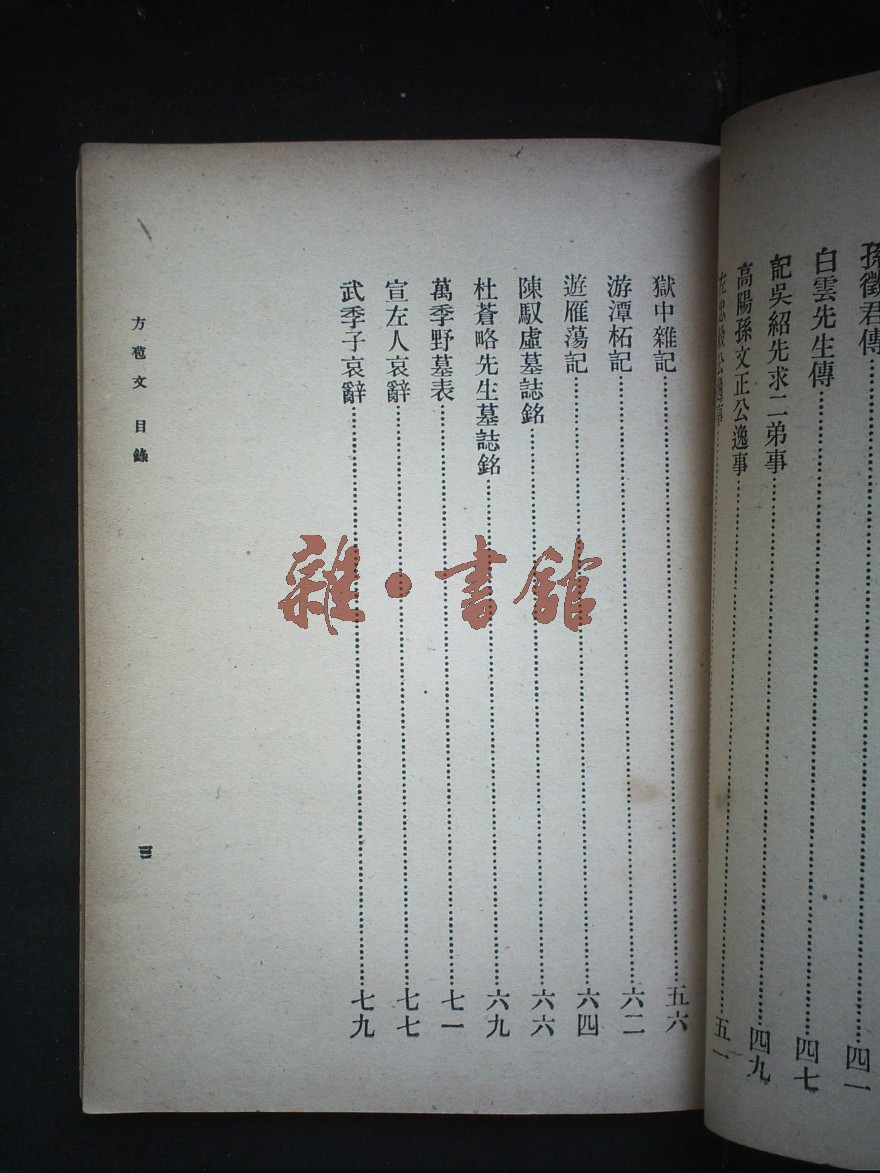 孫徵君傳……四一
白雲先生傳……四七
記吳紹先求二弟事……四九
高陽孫文正公逸事
左忠毅公逸事……五一
獄中雜記……五六
游潭柘記……六二
遊雁蕩記……六四
陳馭虛墓誌銘……六六
杜蒼略先生墓誌銘……六九
萬季野墓表……七一
宣左人哀辭……七七
武季子哀辭……七九
方苞文 目錄
三
雜·書館